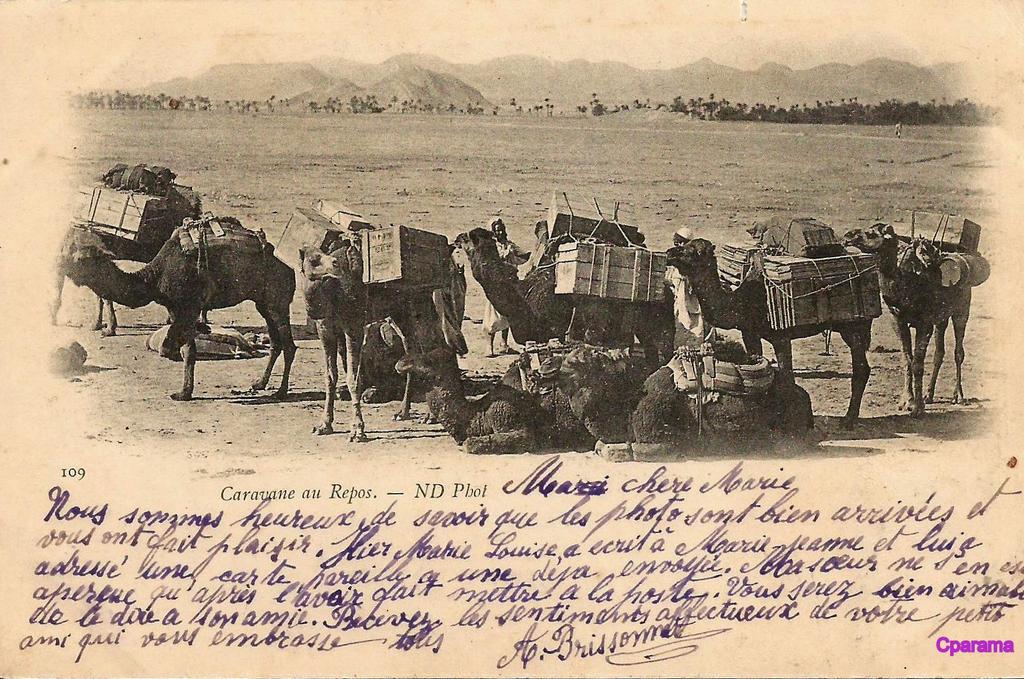 109
Caravane au Repos. — ND Phot
Ma chere Marie
Nous sommes heureux de savoir que les photo sont bien arrivées et
vous ont fait plaisir. Hier Marie Louise a ecrit à Marie-jeanne et lui a
adressé une carte pareille a une déja envoyée. Masœur ne s'en est
aperçue qu'après l'avoir fait mettre a la poste. Vous serez bien aimable
de le dire a son amie. Recevez les sentiments affectueux de votre petit
ami qui vous embrasse tous
A. Brissonnet
Cparama